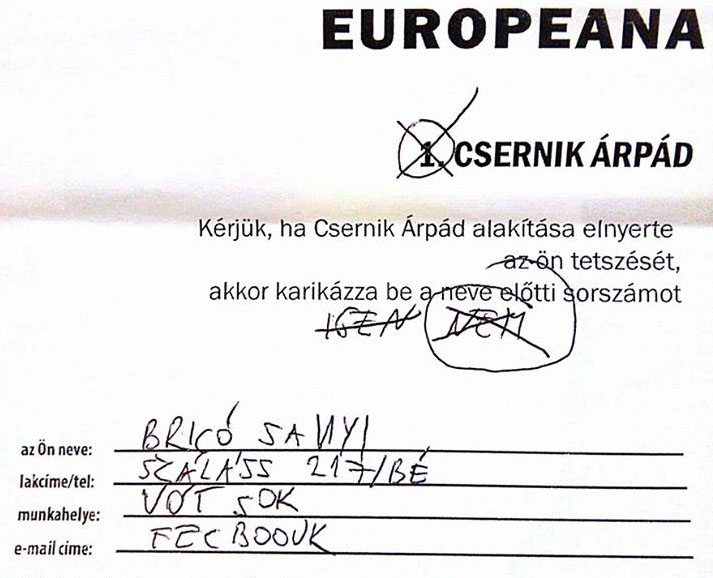 EUROPEANA
1. CSERNIK ÁRPÁD
Kérjük, ha Csernik Árpád alakítása elnyerte
az ön tetszését,
akkor karikázza be a neve előtti sorszámot
IGEN NEM
az Ön neve: BRICÓ SANYI
lakcíme/tel: SZÁLÁSS 217/BÉ
munkahelye: VÓT SOK
e-mail címe: FECBOOUK